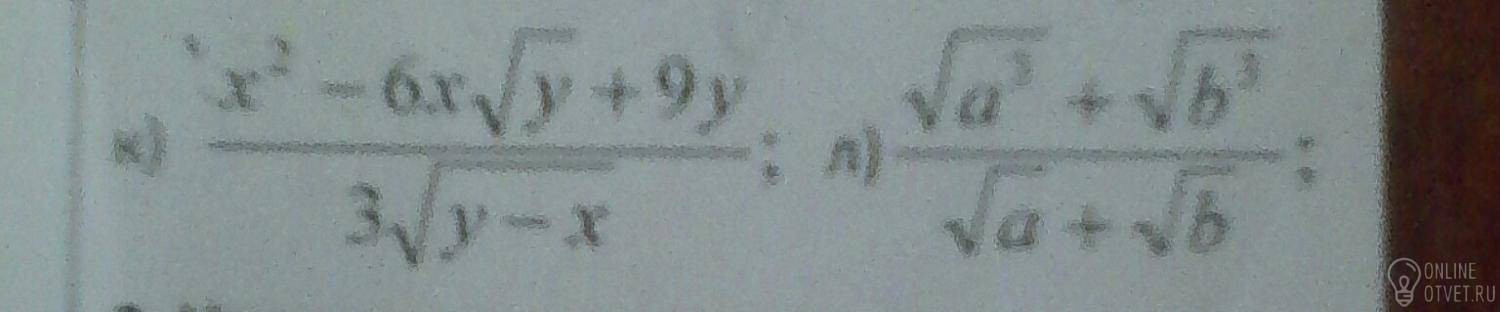 к) \frac{x^2 - 6x\sqrt{y} + 9y}{3\sqrt{y - x}}; л) \frac{\sqrt{a^3} + \sqrt{b^3}}{\sqrt{a} + \sqrt{b}};
ONLINE
OTVET.RU